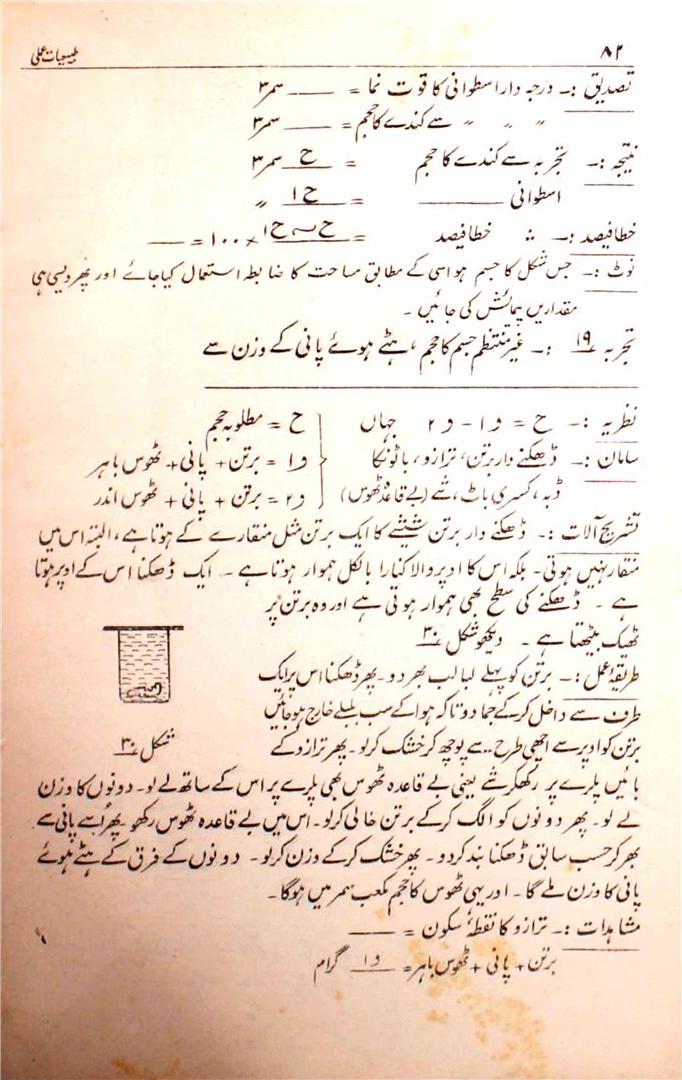 ۸۲ طبیعیات عملی
تصدیق :۔ درجہ دار اسطوانی کا قوت نما = ——— سمر۳
〃 〃 〃 سے کندے کا حجم = ——— سمر۳
نتیجہ :۔ تجربہ سے کندے کا حجم = ح سمر۳
اسطوانی ——— = ح۱ 〃
خطا فیصد :۔ ∴ خطا فیصد = ح ~ ح۱ / × ۱۰۰ = ——
نوٹ :۔ جس شکل کا جسم ہو اسی کے مطابق مساحت کا ضابطہ استعمال کیا جائے اور پھر ویسی ہی
مقداریں پیمائش کی جائیں ۔
تجربہ ۱۹ :۔ غیر منتظم جسم کا حجم ، ہٹے ہوئے پانی کے وزن سے
نظریہ :۔ ح = و۱ - و۲ جہاں ح = مطلوبہ حجم
سامان :۔ ڈھکنے دار برتن، ترازو، باٹونکا و۱ = برتن + پانی + ٹھوس باہر
ڈبہ، کسری باٹ، شے (بے قاعدہ ٹھوس) و۲ = برتن + پانی + ٹھوس اندر
تشریح آلات :۔ ڈھکنے دار برتن شیشے کا ایک برتن مثل منقارے کے ہوتا ہے، البتہ اس میں
منقار نہیں ہوتی۔ بلکہ اس کا اوپر والا کنارا بالکل ہموار ہوتا ہے ۔ ایک ڈھکنا اس کے اوپر ہوتا
ہے ۔ ڈھکنے کی سطح بھی ہموار ہوتی ہے اور وہ برتن پر
ٹھیک بیٹھتا ہے ۔ دیکھو شکل ۳۰
طریقۂ عمل :۔ برتن کو پہلے لبالب بھر دو۔ پھر ڈھکنا اس پر ایک
طرف سے داخل کر کے جما دو تاکہ ہوا کے سب بلبلے خارج ہو جائیں
برتن کو اوپر سے اچھی طرح سے پوچھ کر خشک کر لو۔ پھر ترازو کے
شکل ۳۰
بائیں پلرے پر رکھکر شے یعنی بے قاعدہ ٹھوس بھی پلرے پر اس کے ساتھ لے لو۔ دونوں کا وزن
لے لو۔ پھر دونوں کو الگ کر کے برتن خالی کر لو۔ اس میں بے قاعدہ ٹھوس رکھو۔ پھر اُسے پانی سے
بھر کر حسب سابق ڈھکنا بند کر دو۔ پھر خشک کر کے وزن کر لو۔ دونوں کے فرق کے ہٹے ہوئے
پانی کا وزن ملے گا۔ اور یہی ٹھوس کا حجم مکعب سمر میں ہوگا۔
مشاہدات :۔ ترازو کا نقطۂ سکون = ——
برتن + پانی + ٹھوس باہر = و۱ گرام